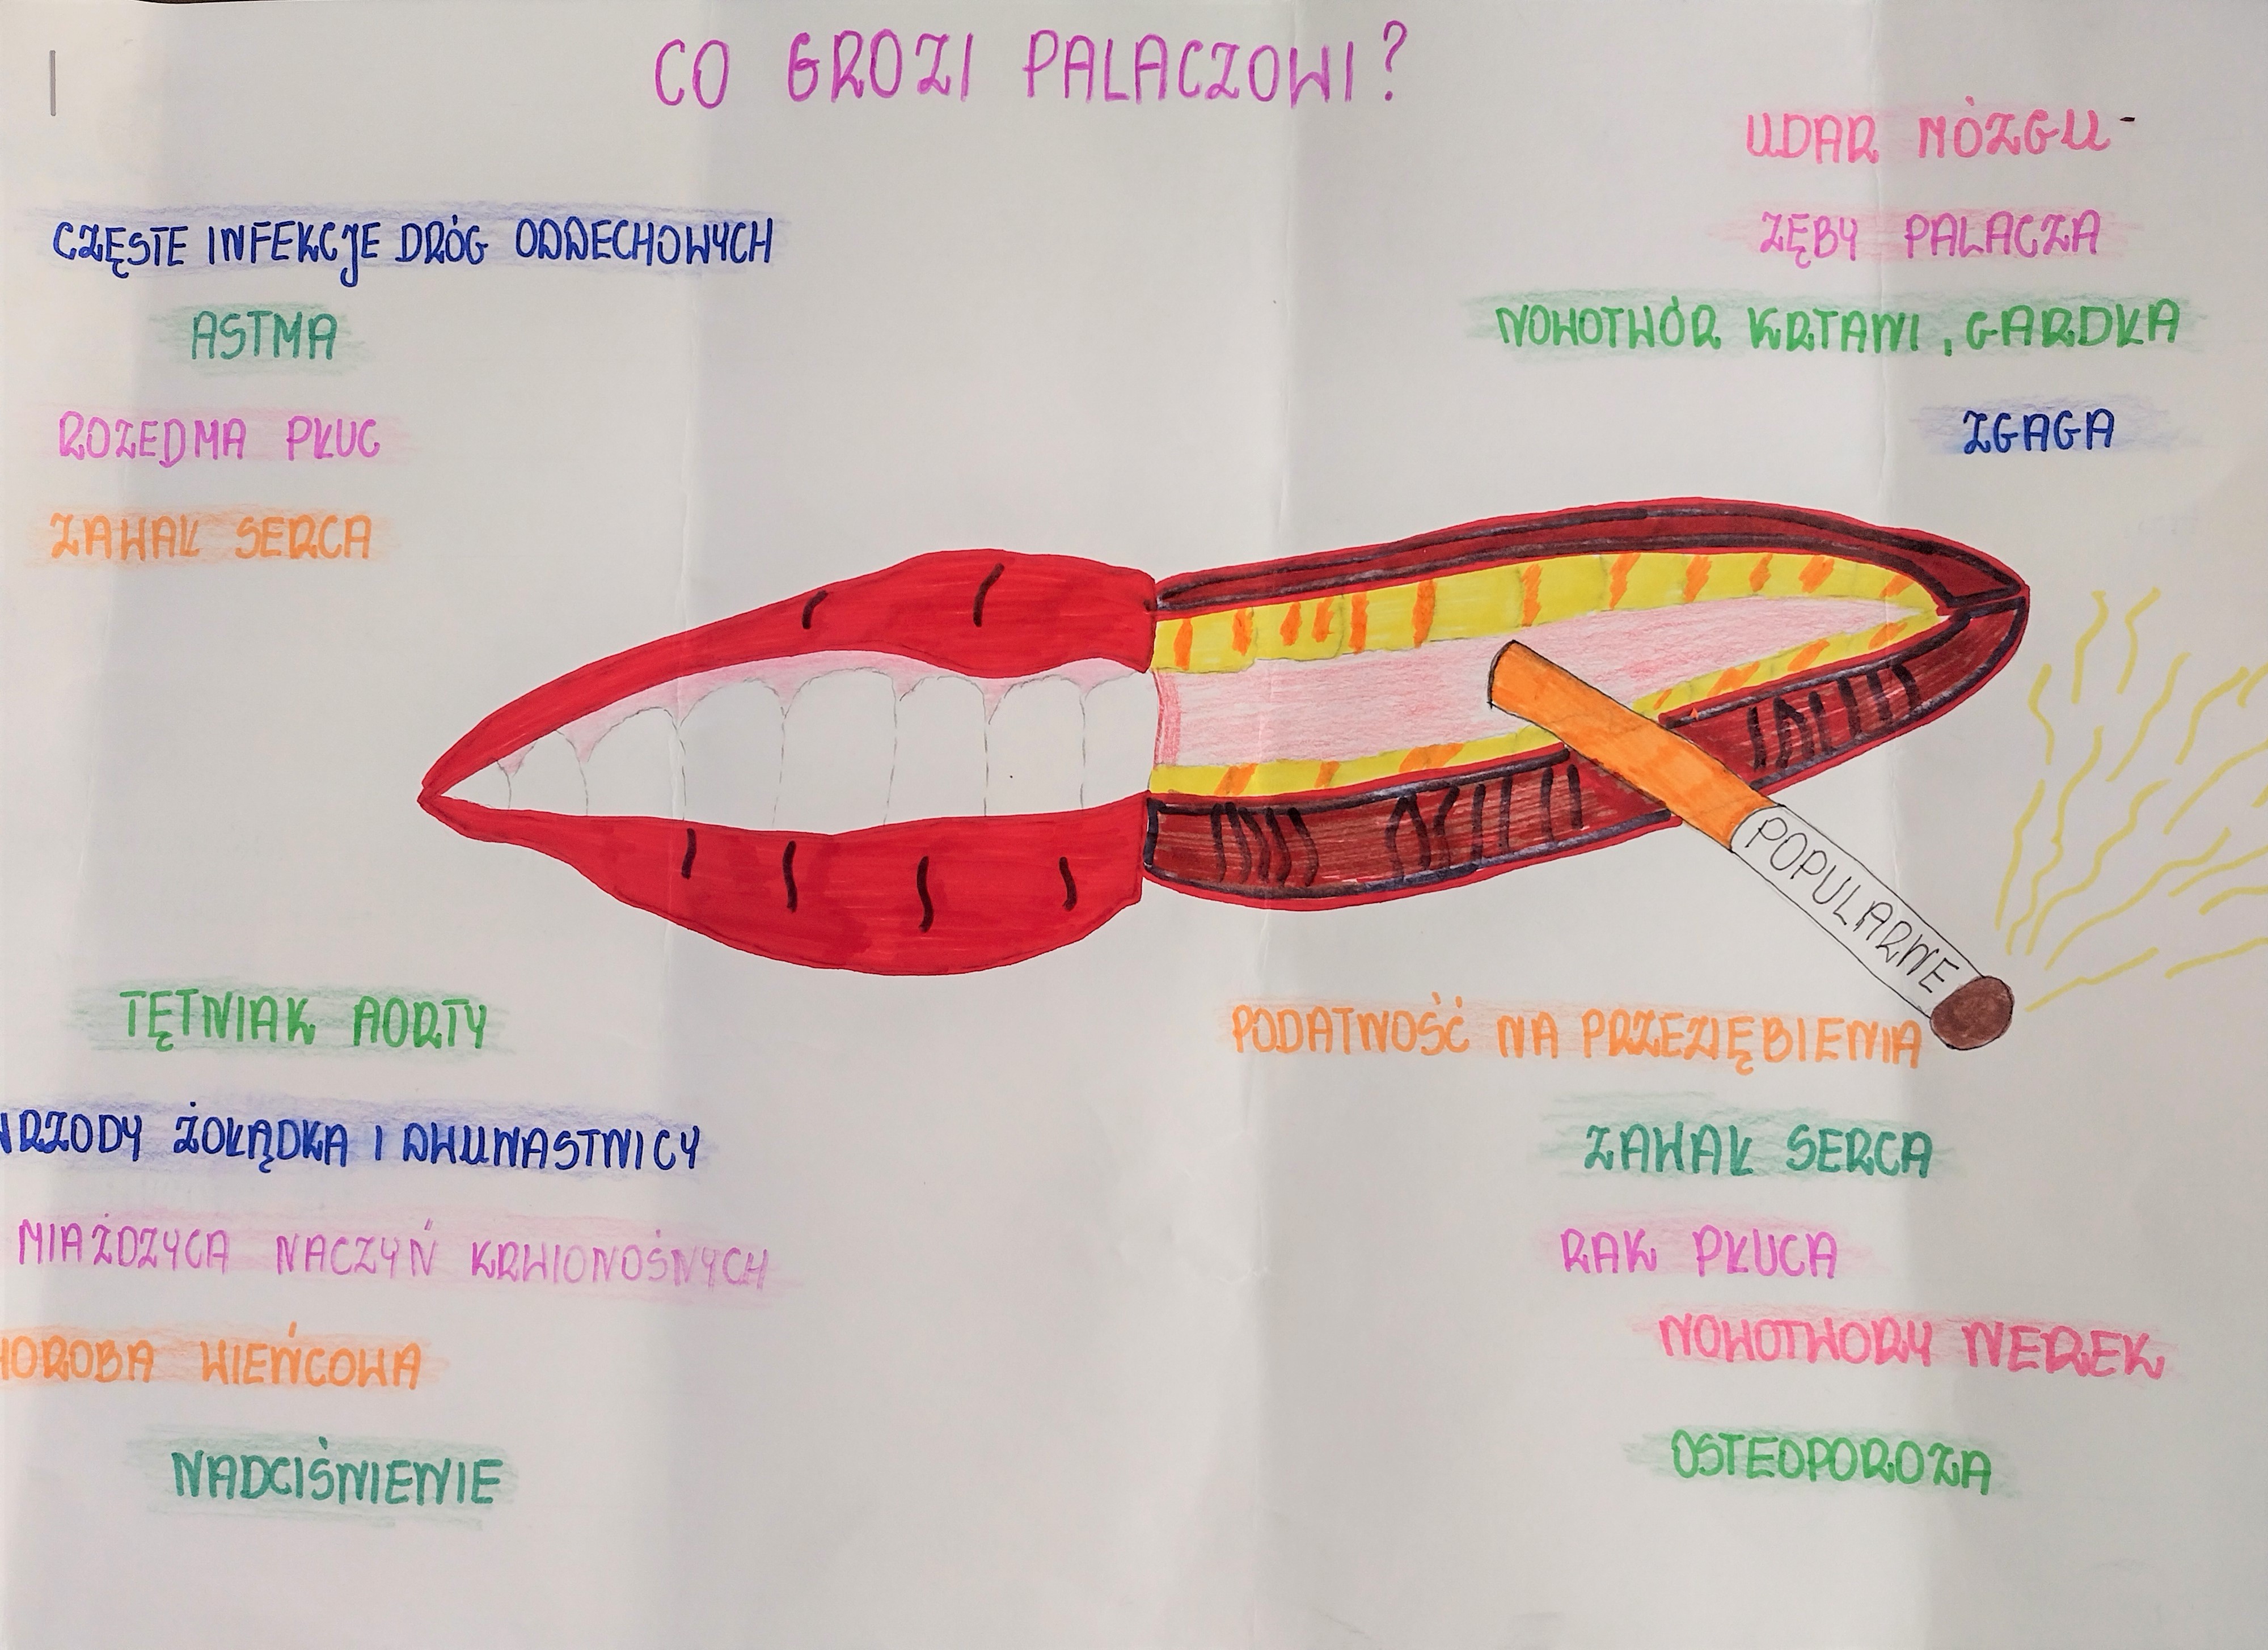 CO GROZI PALACZOWI?
CZĘSTE INFEKCJE DRÓG ODDECHOWYCH
ASTMA
ROZEDMA PŁUC
ZAWAŁ SERCA
UDAR MÓZGU
ZĘBY PALACZA
NOWOTWÓR KRTANI, GARDŁA
ZGAGA
POPULARNE
TĘTNIAK AORTY
WRZODY ŻOŁĄDKA I DWUNASTNICY
MIAŻDZYCA NACZYŃ KRWIONOŚNYCH
HOROBA WIEŃCOWA
NADCIŚNIENIE
PODATNOŚĆ NA PRZEZIĘBIENIA
ZAWAŁ SERCA
RAK PŁUCA
NOWOTWORY NEREK
OSTEOPOROZA